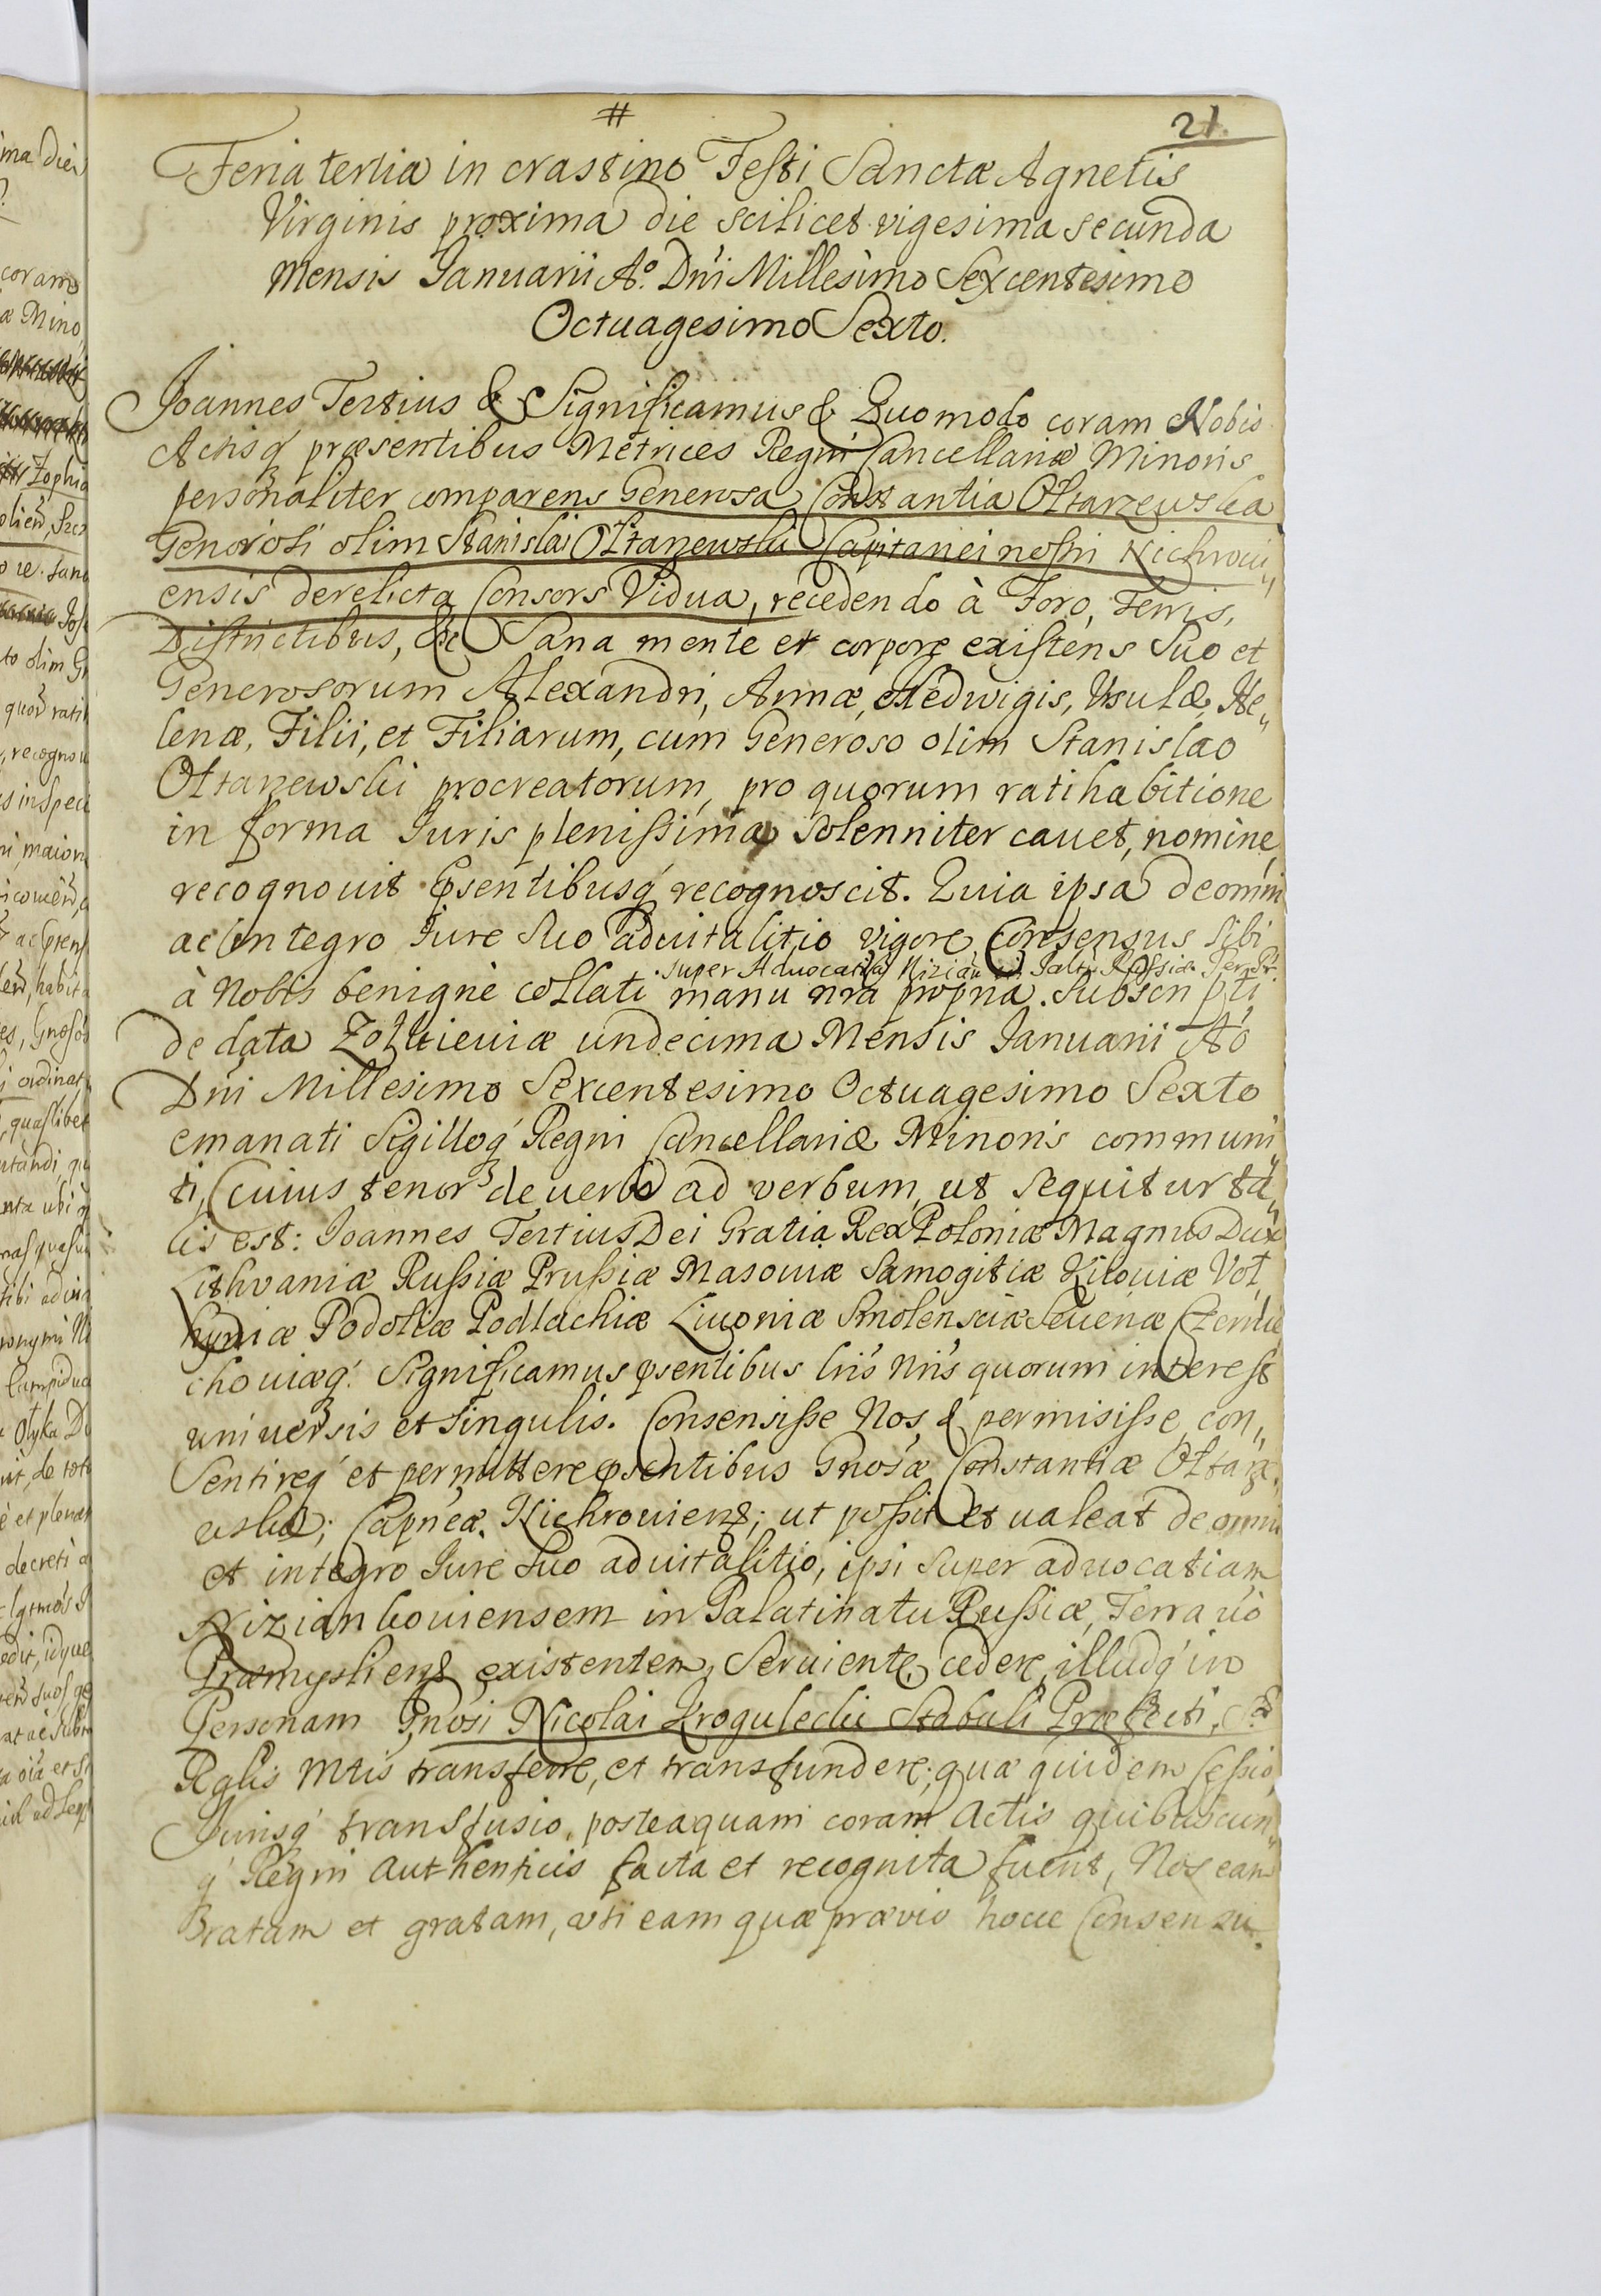 #
21.
Feria tertia in crastino Festi Sanctæ Agnetis
Virginis proxima die scilicet vigesima secunda
mensis Januarii Aº. Dńi Millesimo Sexcentesimo
Octuagesimo Sexto.
Joannes Tertius & Significamus & Quomodo coram Nobis
Actisq́ præsentibus Metrices Regni Cancellariæ Minoris
personaliter comparens Generosa Constantia Ołtarzewska
Generosi olim Stanislai Ołtarzewski Capitanei nostri Nichwoui„
ensis derelicta Consors Vidua, recedendo à Foro, Terris,
Districtibus, &c Sana mente et corpore existens Suo et
Generosorum Alexandri, Annæ, Hedwigis, Ursulæ, He„
lenæ, Filii, et Filiarum, cum Generoso olim Stanislao
Ołtarzewski procreatorum, pro quorum ratihabitione
in forma Juris plenissima solenniter cavet, nomine,
recognouit p̃sentibusq́ recognoscit. Quia ipsa de omni
ac integro Jure Suo aduitalitio vigore Consensus sibi
super Advocatia
à Nobis benignè collati manu nrá propria Subscripti
de data Zołkieuiæ undecima Mensis Januarii Aº
Dńi Millesimo Sexcentesimo Octuagesimo Sexto
emanati Sigilloq́ Regni Cancellariæ Minoris communi„
ti, Cuius tenor de uerbo ad verbum, ut sequitur ta„
lis est: Joannes Tertius Dei Gratia Rex Poloniæ Magnus Dux
Lithvaniæ Russiæ Prussiæ Masouiæ Samogitiæ Kiiouiæ Vol„
hyniæ Podoliæ Podlachiæ Liuoniæ Smolensciæ Seueriæ Czernie
chouiæq́. Significamus p̃sentibus lris nris quorum interest
uniuersis et singulis. Consensisse Nos, & permisisse, con„
sentireq́ et permittere p̃sentibus Gnosæ Constantiæ Ołtarze„
wska; Capneæ. Nichrouiens; ut possit et ualeat de omni
et integro Jure Suo aduitalitio, ipsi super aduocatiam
Niziankouiensem in Palatinatu Russiæ, Terra uò
Præmysliens existentem, Seruiente, cedere, illudq́ in
Personam Gnosi Nicolai Kroguleclii Stabuli Præfecti,
Rglis Mtis transferre, et transfundere; quæ quidem Cessio,
Jurisq́ transfusio, posteaquam coram Actis quibuscun„
q́ Regni authenticis facta et recognita fuerit, Nos eam
Bratam et gratam, uti eam quæ prævio hocce Consensu